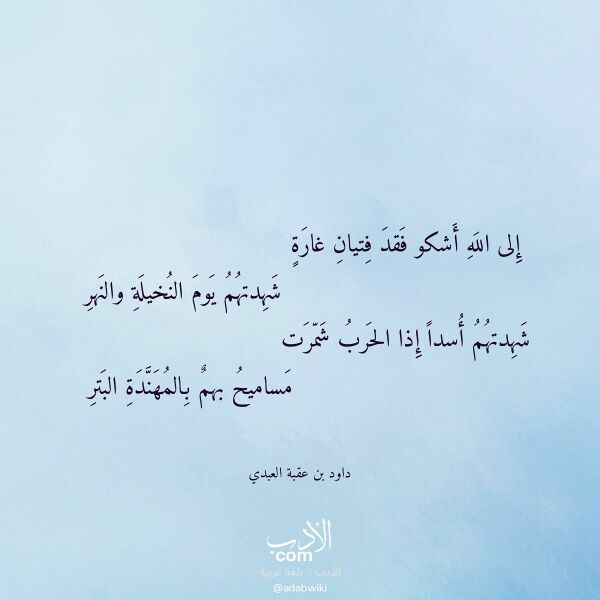 إِلى اللَهِ أَشكو فَقدَ فِتيانِ غارَةٍ
شَهِدتهُمُ يَومَ النُخيلَةِ والنَهرِ
شَهِدتهُمُ أُسداً إِذا الحَربُ شَمّرَت
مَساميحُ بهمٌ بِالمُهَنَّدَةِ البَترِ
داود بن عقبة العبدي
الأدب
com
الأدب .. بلغة عربية
@adabwiki